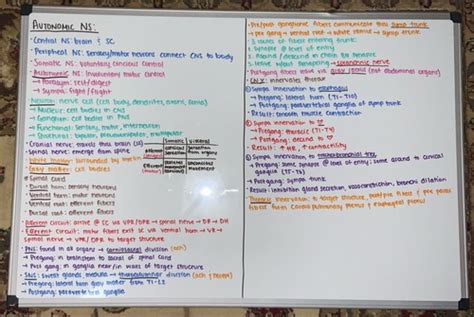 AUTONOMIC NS:
· Central NS: brain & SC
· Peripheral NS: sensory/motor neurons connect CNS to body
· Somatic NS: voluntary conscious control
· Autonomic NS: involuntary motor control
→ Parasym: rest/digest
→ Sympa: fight/flight
· Neuron: nerve cell (cell body, dendrites, axons, soma)
→ Nucleus: cell bodies in CNS
→ Ganglion: cell bodies in PNS
→ Functional: sensory, motor, interneuron
→ Structural: bipolar, pseudounipolar, multipolar
· Cranial nerve: travels thru brain
· Spinal nerve: emerge from spine
· White matter: surrounded by myelin
· Gray matter: cell bodies
Somatic
Visceral
· Spinal cord
· Dorsal horn: sensory neurons
· Ventral horn: motor neurons
· Ventral root: efferent fibers
· Dorsal root: afferent fibers
· Afferent circuit: arrive @ SC via VPR/DPR → spinal nerve → DR → DH
· Efferent circuit: motor fibers exit SC via ventral horn → VR →
spinal nerve → VPR/DPR to target structure
· PNS: found in all organs → craniosacral division (ach)
→ Pregang: in brainstem to sacral of spinal cord
→ Post gang: in ganglia near/in walls of target structure
· SNS: sweat glands, medulla → thoracolumbar division (ach & norepi)
→ Pregang: lateral horn gray matter from T1-L2
→ Postgang: paravertebral ganglia
· Pre/post ganglionic fibers communicate thru symp trunk
→ pre gang → ventral root → white ramus → symp trunk
→ 3 routes of fibers entering trunk:
1. synapse @ level of entry
2. ascend / descend in chain for synapse
3. leave without synapsing → splanchnic nerve
· Postgang fibers leave via gray rami (not abdominal organs)
· CN X: innervates thorax
① Sympa innervation to esophagus
→ Pregang: lateral horn (T1-T10)
→ Postgang: postvertebral ganglia of symp trunk
→ Result: smooth muscle contraction
② Sympa innervation to ♡
→ Pregang: thoracic (T1-T4)
→ Postgang: around to ♡
→ Result: ↑ HR, ↑ contractility
③ Sympa innervation to tracheobronchial tree
→ Pregang: some synapse @ level of entry; some ascend to cervical
ganglia
→ Postgang: symp trunk
→ Result: inhibition gland secretion, vasoconstriction, bronchi dilation
· Thoracic innervation: to target structure, post/pre fibers & pre
fibers form cardiopulmonary plexus & esophageal plexus